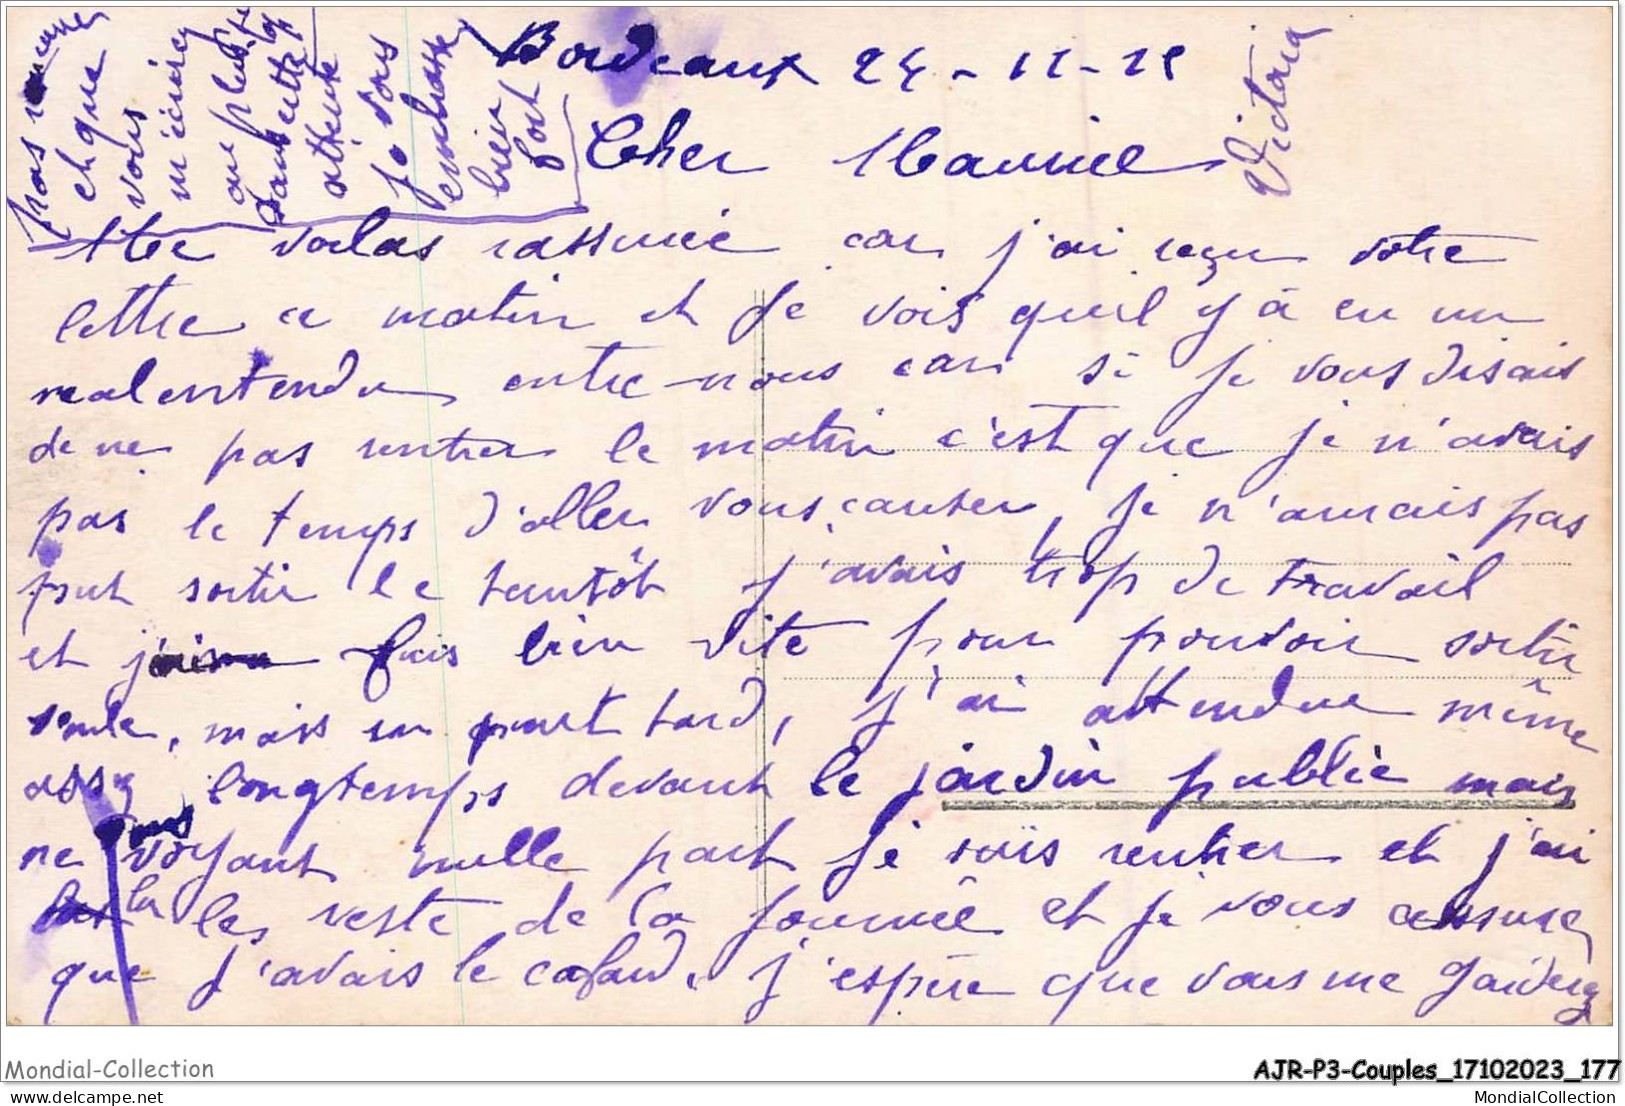 Bordeaux 24-11-18
Cher Maurice
Me voilas rassurée car j'ai reçu votre
lettre ce matin et je vois qu'il y à eu un
malentendu entre-nous car si je vous disais
de ne pas rentrer le matin c'est que je n'avais
pas le temps d'aller vous causer, je n'aurais pas
put sortir le tantôt j'avais trop de travail
et j' fais bien vite pour pouvoir sortir
seule, mais un peut tard, j'ai attendue même
assez longtemps devant le jardin public mais
ne vous voyant nulle part je suis rentrer et j'ai
la les reste de la journée et je vous assure
que j'avais le cafard. j'espère que vous me garderez
pas rancune
et que
vous
m'écrirez
au plus
sans cette
attente
je vous
embrasse
bien
fort
Victoria
Mondial-Collection
AJR-P3-Couples_17102023_177
www.mondialcollection.com
MondialCollection